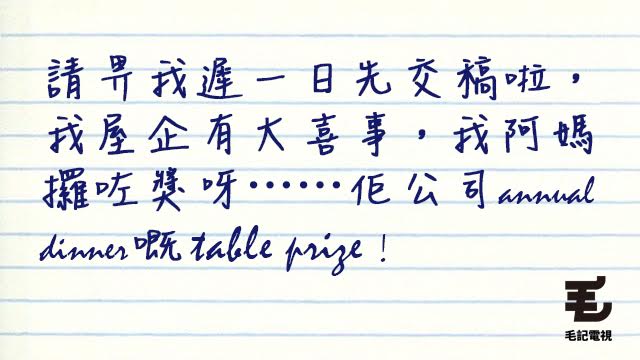 請畀我遲一日先交稿啦，
我屋企有大喜事，我阿媽
攞咗獎呀⋯⋯佢公司annual
dinner嘅table prize！
毛
毛記電視